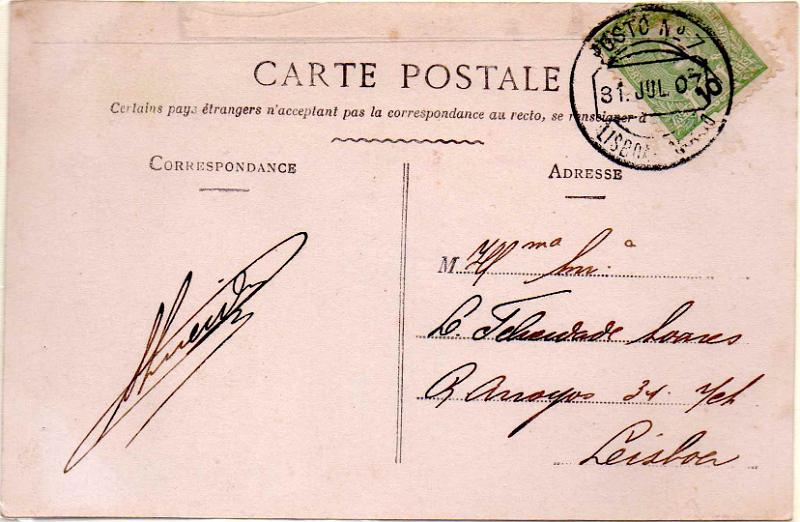 CARTE POSTALE
Certains pays étrangers n'acceptant pas la correspondance au recto, se renseigner à
POSTO Nº 7
31. JUL. 07
10
LISBOA
CORRESPONDANCE
ADRESSE
M Ilma Snr.a
D. Felicidade Soares
R Arroyos 31
Lisboa